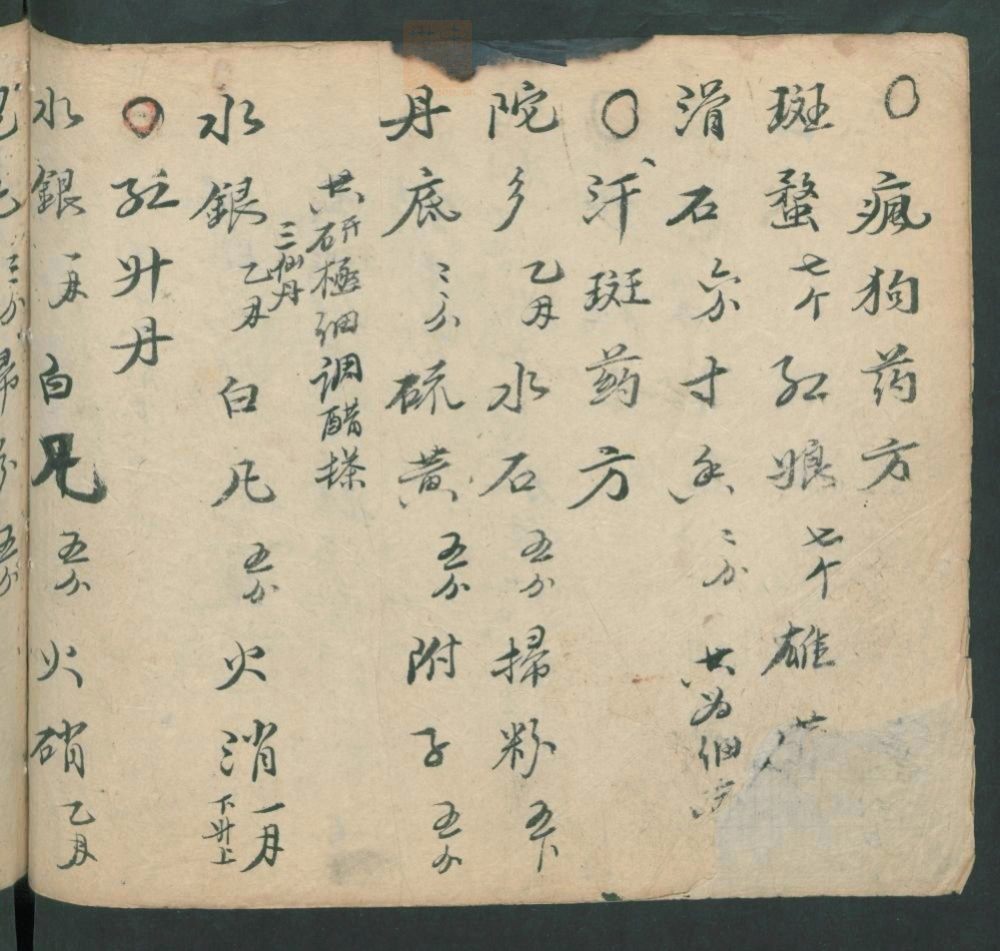 ○瘋狗药方
斑蝥七个红娘七个雄
滑石六分寸香二分共为细
○汗斑药方
陀乡乙月水石五分掃粉五卜
丹底二分硫黄五分附子五分
共研極细调醋搽
三仙丹
水銀乙月白凡五分火消一月下升上
○红升丹
水銀一月白凡五分火硝乙月